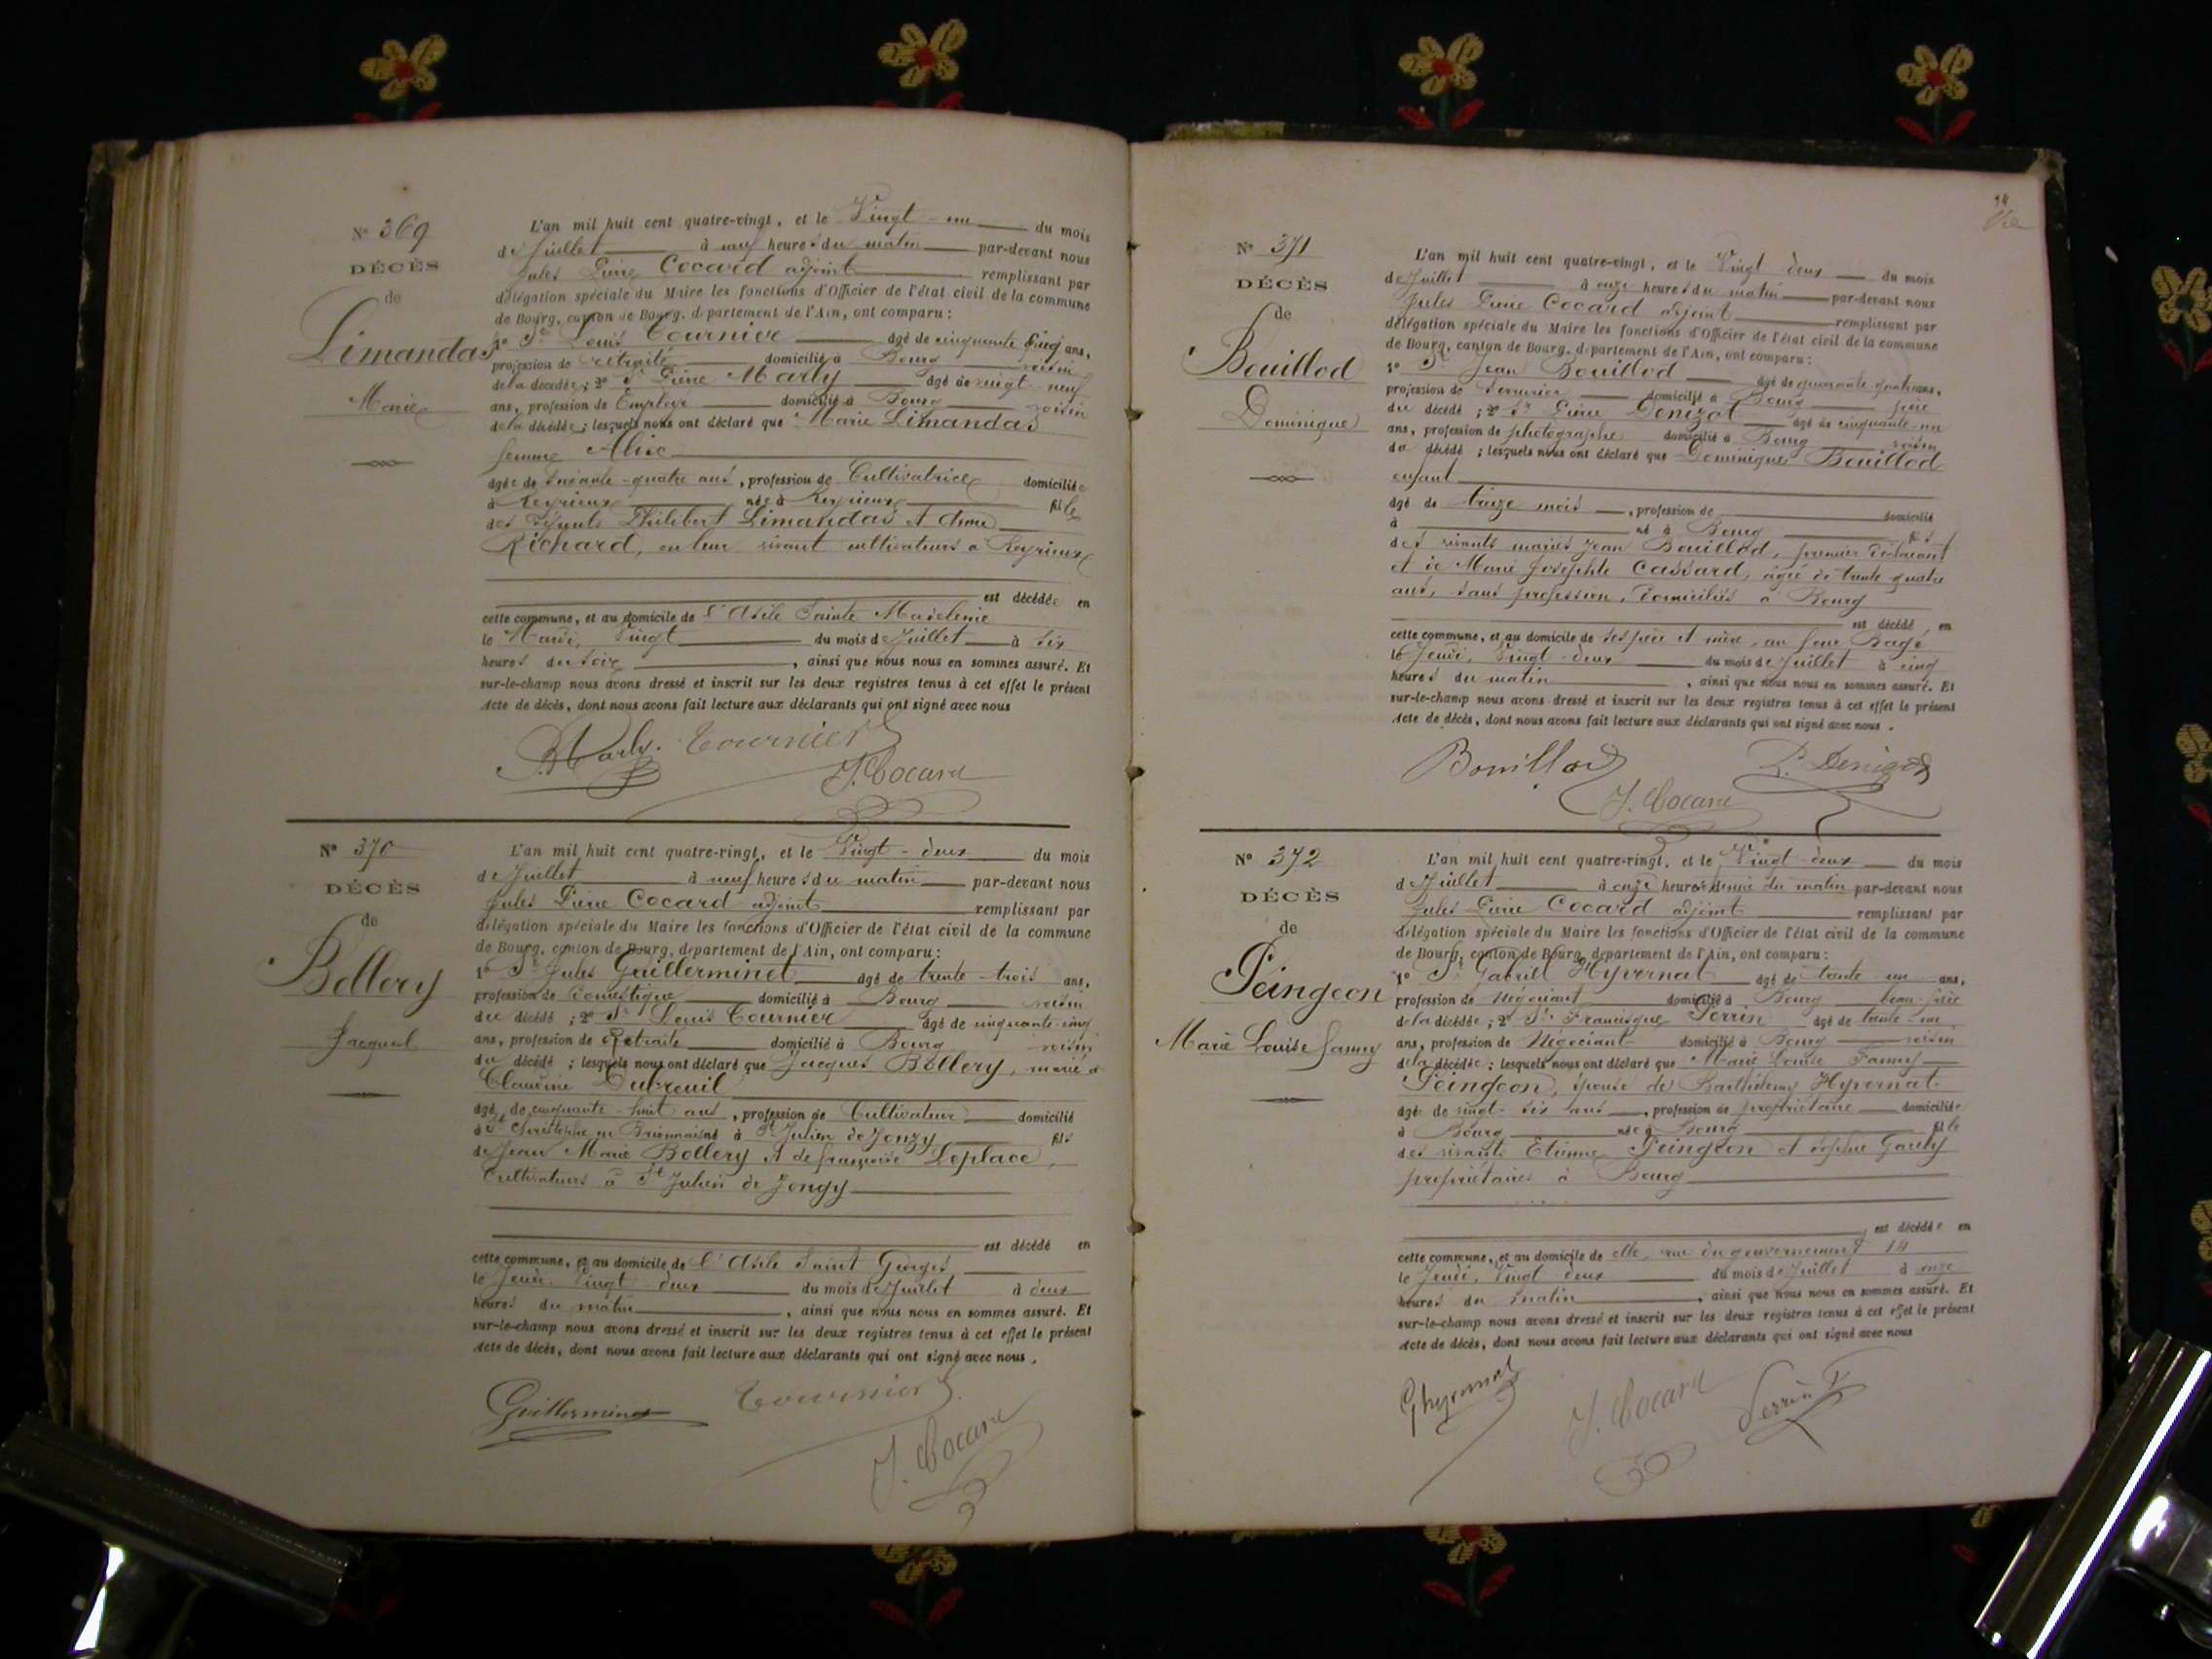 N° 369
DÉCÈS
de
Limandas
Marie
L'an mil huit cent quatre-vingt, et le Vingt-un du mois
de Juillet à neuf heures du matin par-devant nous
Jules Pierre Cocard adjoint remplissant par
délégation spéciale du Maire les fonctions d'Officier de l'état civil de la commune
de Bourg, canton de Bourg, département de l'Ain, ont comparu :
1° Sr Louis Tournier âgé de cinquante cinq ans,
profession de retraité domicilié à Bourg voisin
de la décédée ; 2° Sr Pierre Marly âgé de vingt-neuf
ans, profession de Employé domicilié à Bourg voisin
de la décédée ; lesquels nous ont déclaré que Marie Limandas
femme Alix
âgée de soixante-quatre ans, profession de Cultivatrice domiciliée
à Reyrieux née à Reyrieux fille
des défunts Philibert Limandas et Anne
Richard, en leur vivant cultivateurs à Reyrieux
est décédée en
cette commune, et au domicile de l'Asile Sainte Madeleine
le Mardi, Vingt du mois de Juillet à six
heures du soir, ainsi que nous nous en sommes assuré. Et
sur-le-champ nous avons dressé et inscrit sur les deux registres tenus à cet effet le présent
Acte de décès, dont nous avons fait lecture aux déclarants qui ont signé avec nous
Marly. Tournier
J. Cocard
N° 370
DÉCÈS
de
Bollery
Jacques
L'an mil huit cent quatre-vingt, et le Vingt-deux du mois
de Juillet à neuf heures du matin par-devant nous
Jules Pierre Cocard adjoint remplissant par
délégation spéciale du Maire les fonctions d'Officier de l'état civil de la commune
de Bourg, canton de Bourg, département de l'Ain, ont comparu :
1° Sr Jules Guillerminet âgé de trente-trois ans,
profession de domestique domicilié à Bourg voisin
du décédé ; 2° Sr Louis Tournier âgé de cinquante-cinq
ans, profession de Retraité domicilié à Bourg voisin
du décédé ; lesquels nous ont déclaré que Jacques Bollery, marié à
Claudine Dubreuil
âgé de cinquante huit ans, profession de Cultivateur domicilié
à St Christophe en Brionnais né à St Julien de Jonzy fils
de Jean Marie Bollery et de Françoise Leplace,
Cultivateurs à St Julien de Jonzy
est décédé en
cette commune, et au domicile de l'Asile Saint Georges
le Jeudi, Vingt deux du mois de Juillet à deux
heures du matin, ainsi que nous nous en sommes assuré. Et
sur-le-champ nous avons dressé et inscrit sur les deux registres tenus à cet effet le présent
Acte de décès, dont nous avons fait lecture aux déclarants qui ont signé avec nous.
Guillerminet Tournier
J. Cocard
94
N° 371
DÉCÈS
de
Bouillod
Dominique
L'an mil huit cent quatre-vingt, et le Vingt-deux du mois
de Juillet à onze heures du matin par-devant nous
Jules Pierre Cocard adjoint remplissant par
délégation spéciale du Maire les fonctions d'Officier de l'état civil de la commune
de Bourg, canton de Bourg, département de l'Ain, ont comparu :
1° Sr Jean Bouillod âgé de quarante-quatre ans,
profession de Serrurier domicilié à Bourg père
du décédé ; 2° Sr Pierre Denizot âgé de cinquante-un
ans, profession de photographe domicilié à Bourg voisin
du décédé ; lesquels nous ont déclaré que Dominique Bouillod
enfant
âgé de treize mois, profession de domicilié
à né à Bourg fils
des vivants mariés Jean Bouillod, premier déclarant
et de Marie Josephte Cassard, âgée de trente quatre
ans, sans profession, domiciliés à Bourg
est décédé en
cette commune, et au domicile de ses père et mère, au four Bagé
le Jeudi, Vingt-deux du mois de Juillet à cinq
heures du matin, ainsi que nous nous en sommes assuré. Et
sur-le-champ nous avons dressé et inscrit sur les deux registres tenus à cet effet le présent
Acte de décès, dont nous avons fait lecture aux déclarants qui ont signé avec nous.
Bouillod P. Denizot
J. Cocard
N° 372
DÉCÈS
de
Peingeon
Marie Louise Fanny
L'an mil huit cent quatre-vingt, et le Vingt-deux du mois
de Juillet à onze heures demie du matin par-devant nous
Jules Pierre Cocard adjoint remplissant par
délégation spéciale du Maire les fonctions d'Officier de l'état civil de la commune
de Bourg, canton de Bourg, département de l'Ain, ont comparu :
1° Sr Gabriel Hyvernat âgé de trente-un ans,
profession de Négociant domicilié à Bourg beau-frère
de la décédée ; 2° Sr Francisque Perrin âgé de trente-un
ans, profession de Négociant domicilié à Bourg voisin
de la décédée ; lesquels nous ont déclaré que Marie Louise Fanny
Peingeon, épouse de Barthélemy Hyvernat
âgée de vingt-six ans, profession de propriétaire domiciliée
à Bourg née à Bourg fille
des vivants Etienne Peingeon et Sophie
propriétaires à Bourg
est décédée en
cette commune, et au domicile de elle, rue du gouvernement 14
le Jeudi, Vingt deux du mois de Juillet à onze
heures du matin, ainsi que nous nous en sommes assuré. Et
sur-le-champ nous avons dressé et inscrit sur les deux registres tenus à cet effet le présent
Acte de décès, dont nous avons fait lecture aux déclarants qui ont signé avec nous
Ghyvernat J. Cocard Perrin F